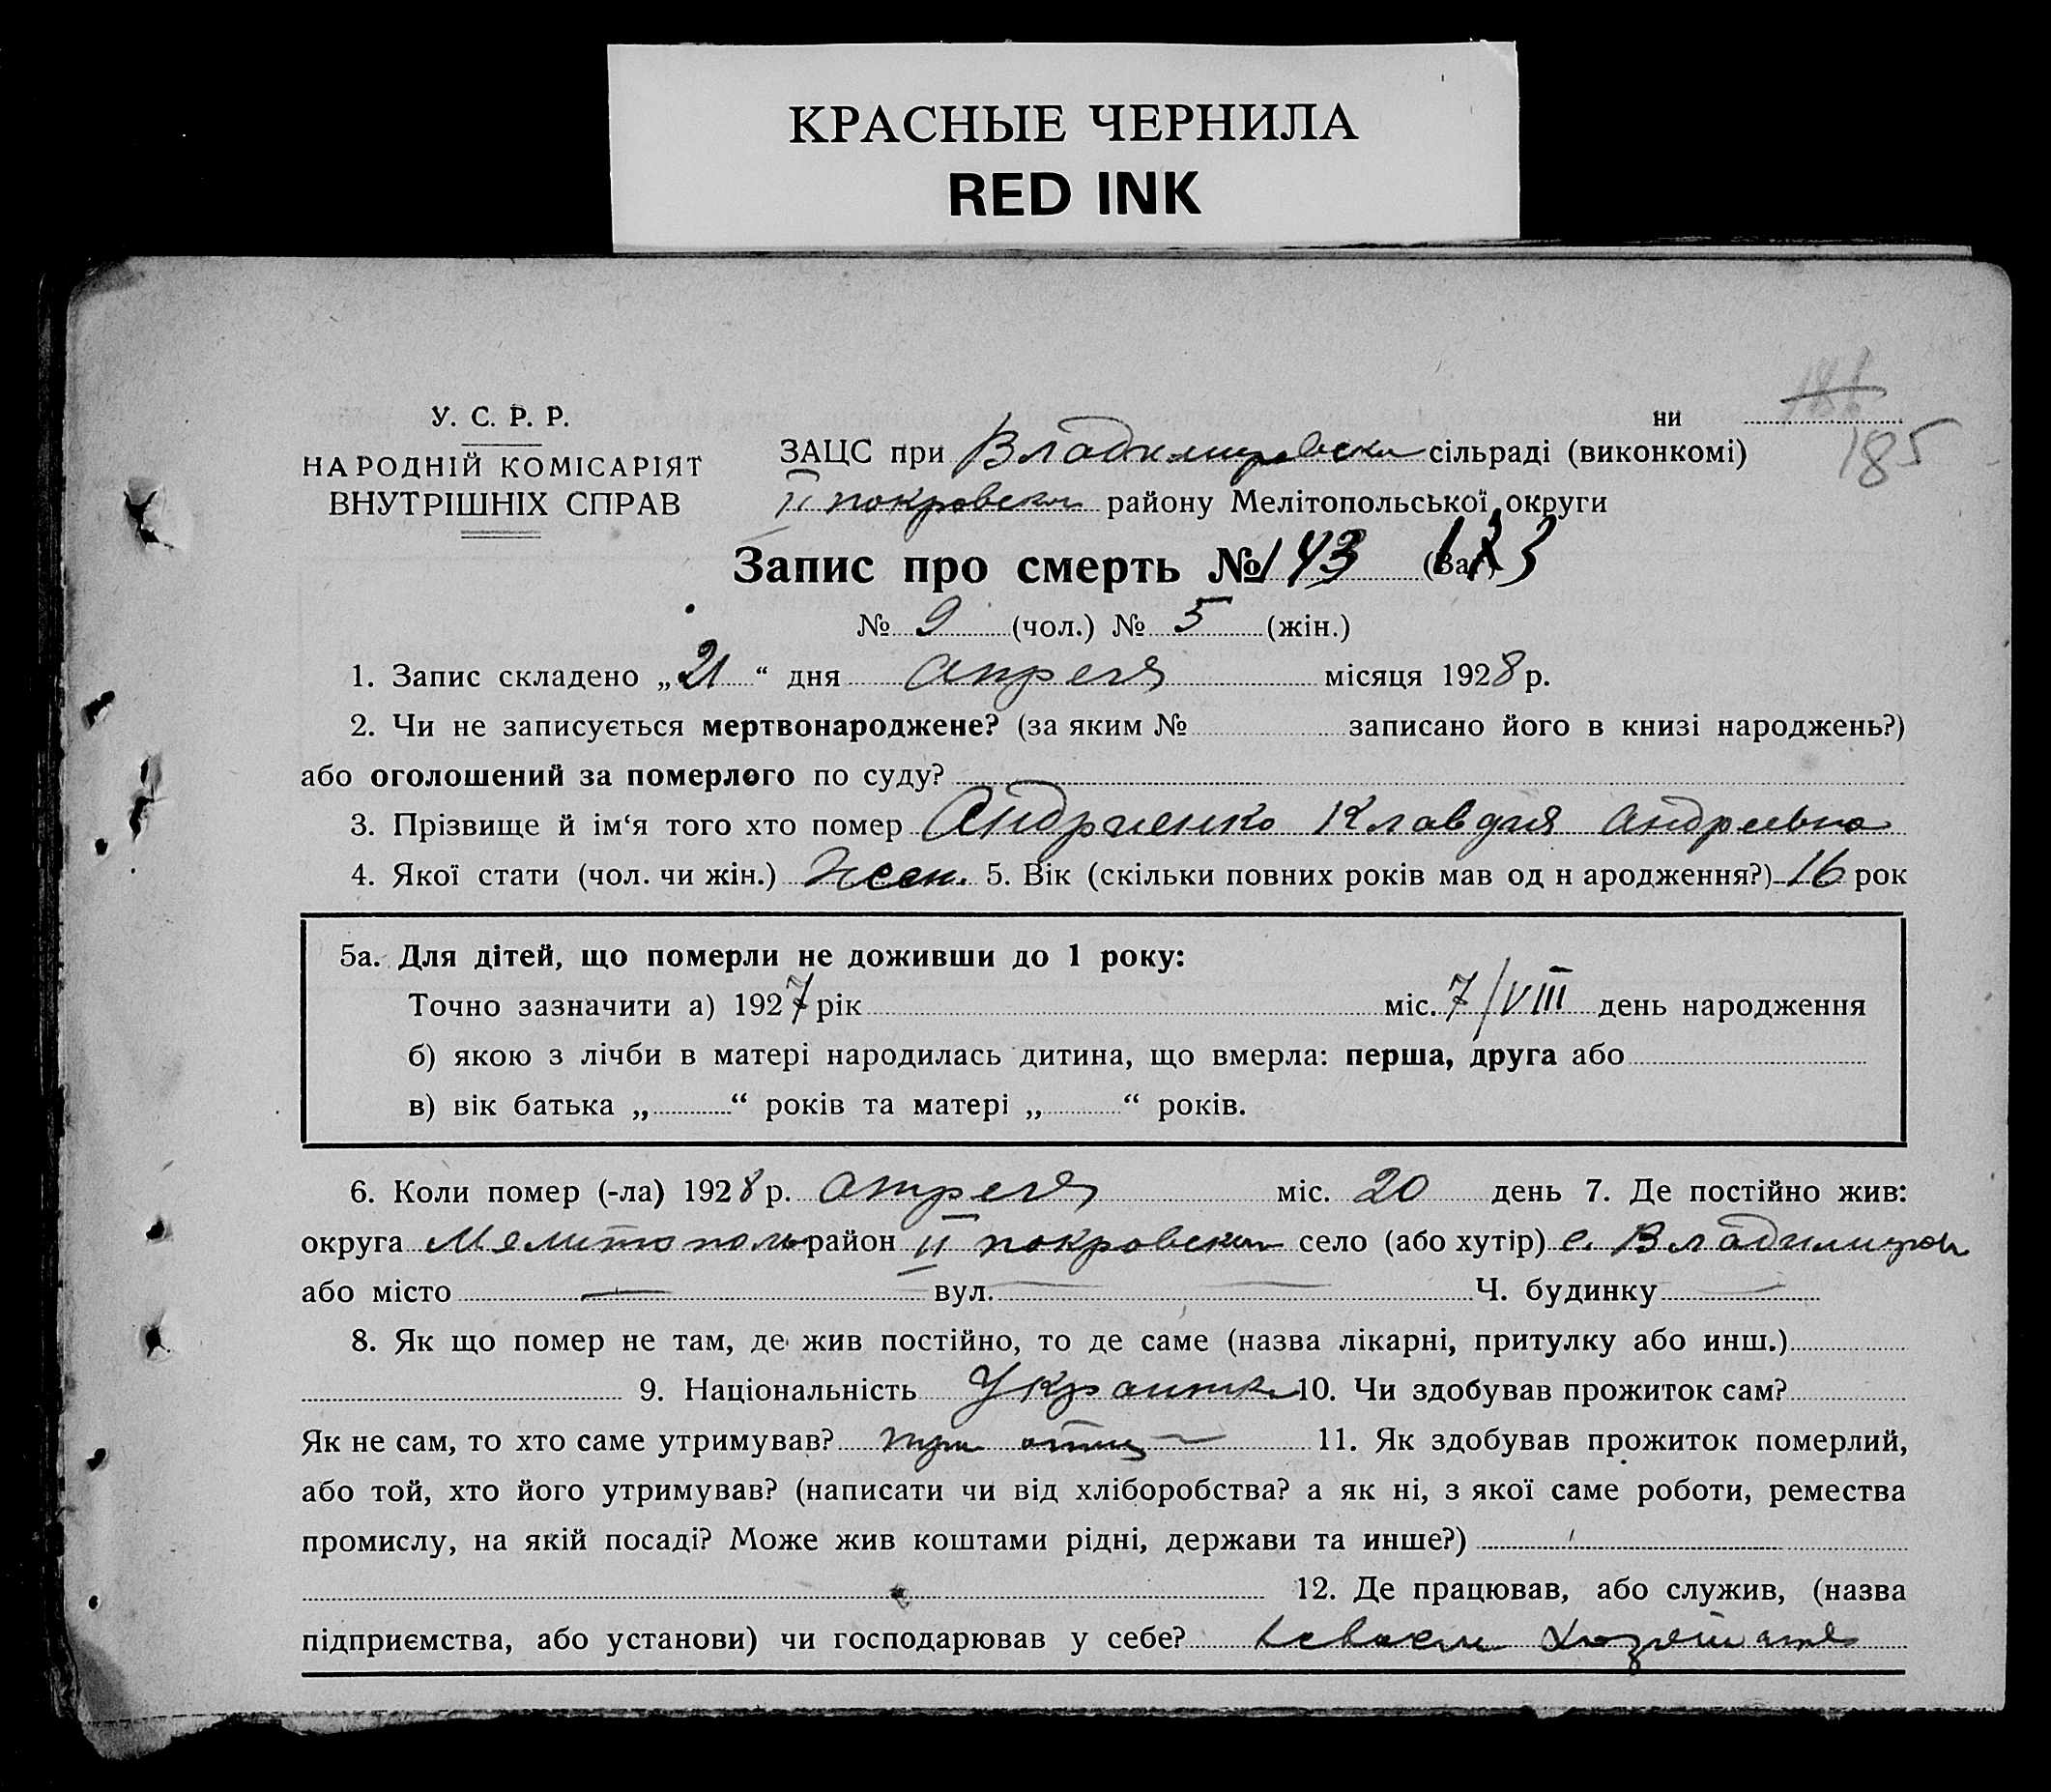 КРАСНЫЕ ЧЕРНИЛА
RED INK
ни
185
У. С. Р. Р.
НАРОДНІЙ КОМІСАРІЯТ
ВНУТРІШНІХ СПРАВ
ЗАЦС при Владимировски сільраді (виконкомі)
II покровском району Мелітопольської округи
Запис про смерть № 143
№ 9 (чол.) № 5 (жін.)
1. Запис складено „21“ дня апреля місяця 1928 р.
2. Чи не записується мертвонароджене? (за яким № записано його в книзі народжень?)
або оголошений за померлого по суду?
3. Прізвище й ім‘я того хто помер Андриенко Клавдия Андреевна
4. Якої стати (чол. чи жін.) Жен. 5. Вік (скільки повних років мав од н ародження?) 16 рок
5а. Для дітей, що померли не доживши до 1 року:
Точно зазначити а) 1927 рік міс. 7/VIII день народження
б) якою з лічби в матері народилась дитина, що вмерла: перша, друга або
в) вік батька „ “ років та матері „ “ років.
6. Коли помер (-ла) 1928 р. апреля міс. 20 день 7. Де постійно жив:
округа Мелитополь район II покровском село (або хутір) с. Владимиров
або місто — вул. — Ч. будинку —
8. Як що помер не там, де жив постійно, то де саме (назва лікарні, притулку або инш.)
9. Національність Украинка 10. Чи здобував прожиток сам?
Як не сам, то хто саме утримував? при отце 11. Як здобував прожиток померлий,
або той, хто його утримував? (написати чи від хліборобства? а як ні, з якої саме роботи, ремества
промислу, на якій посаді? Може жив коштами рідні, держави та инше?)
12. Де працював, або служив, (назва
підприємства, або установи) чи господарював у себе? в своем хозяйстве